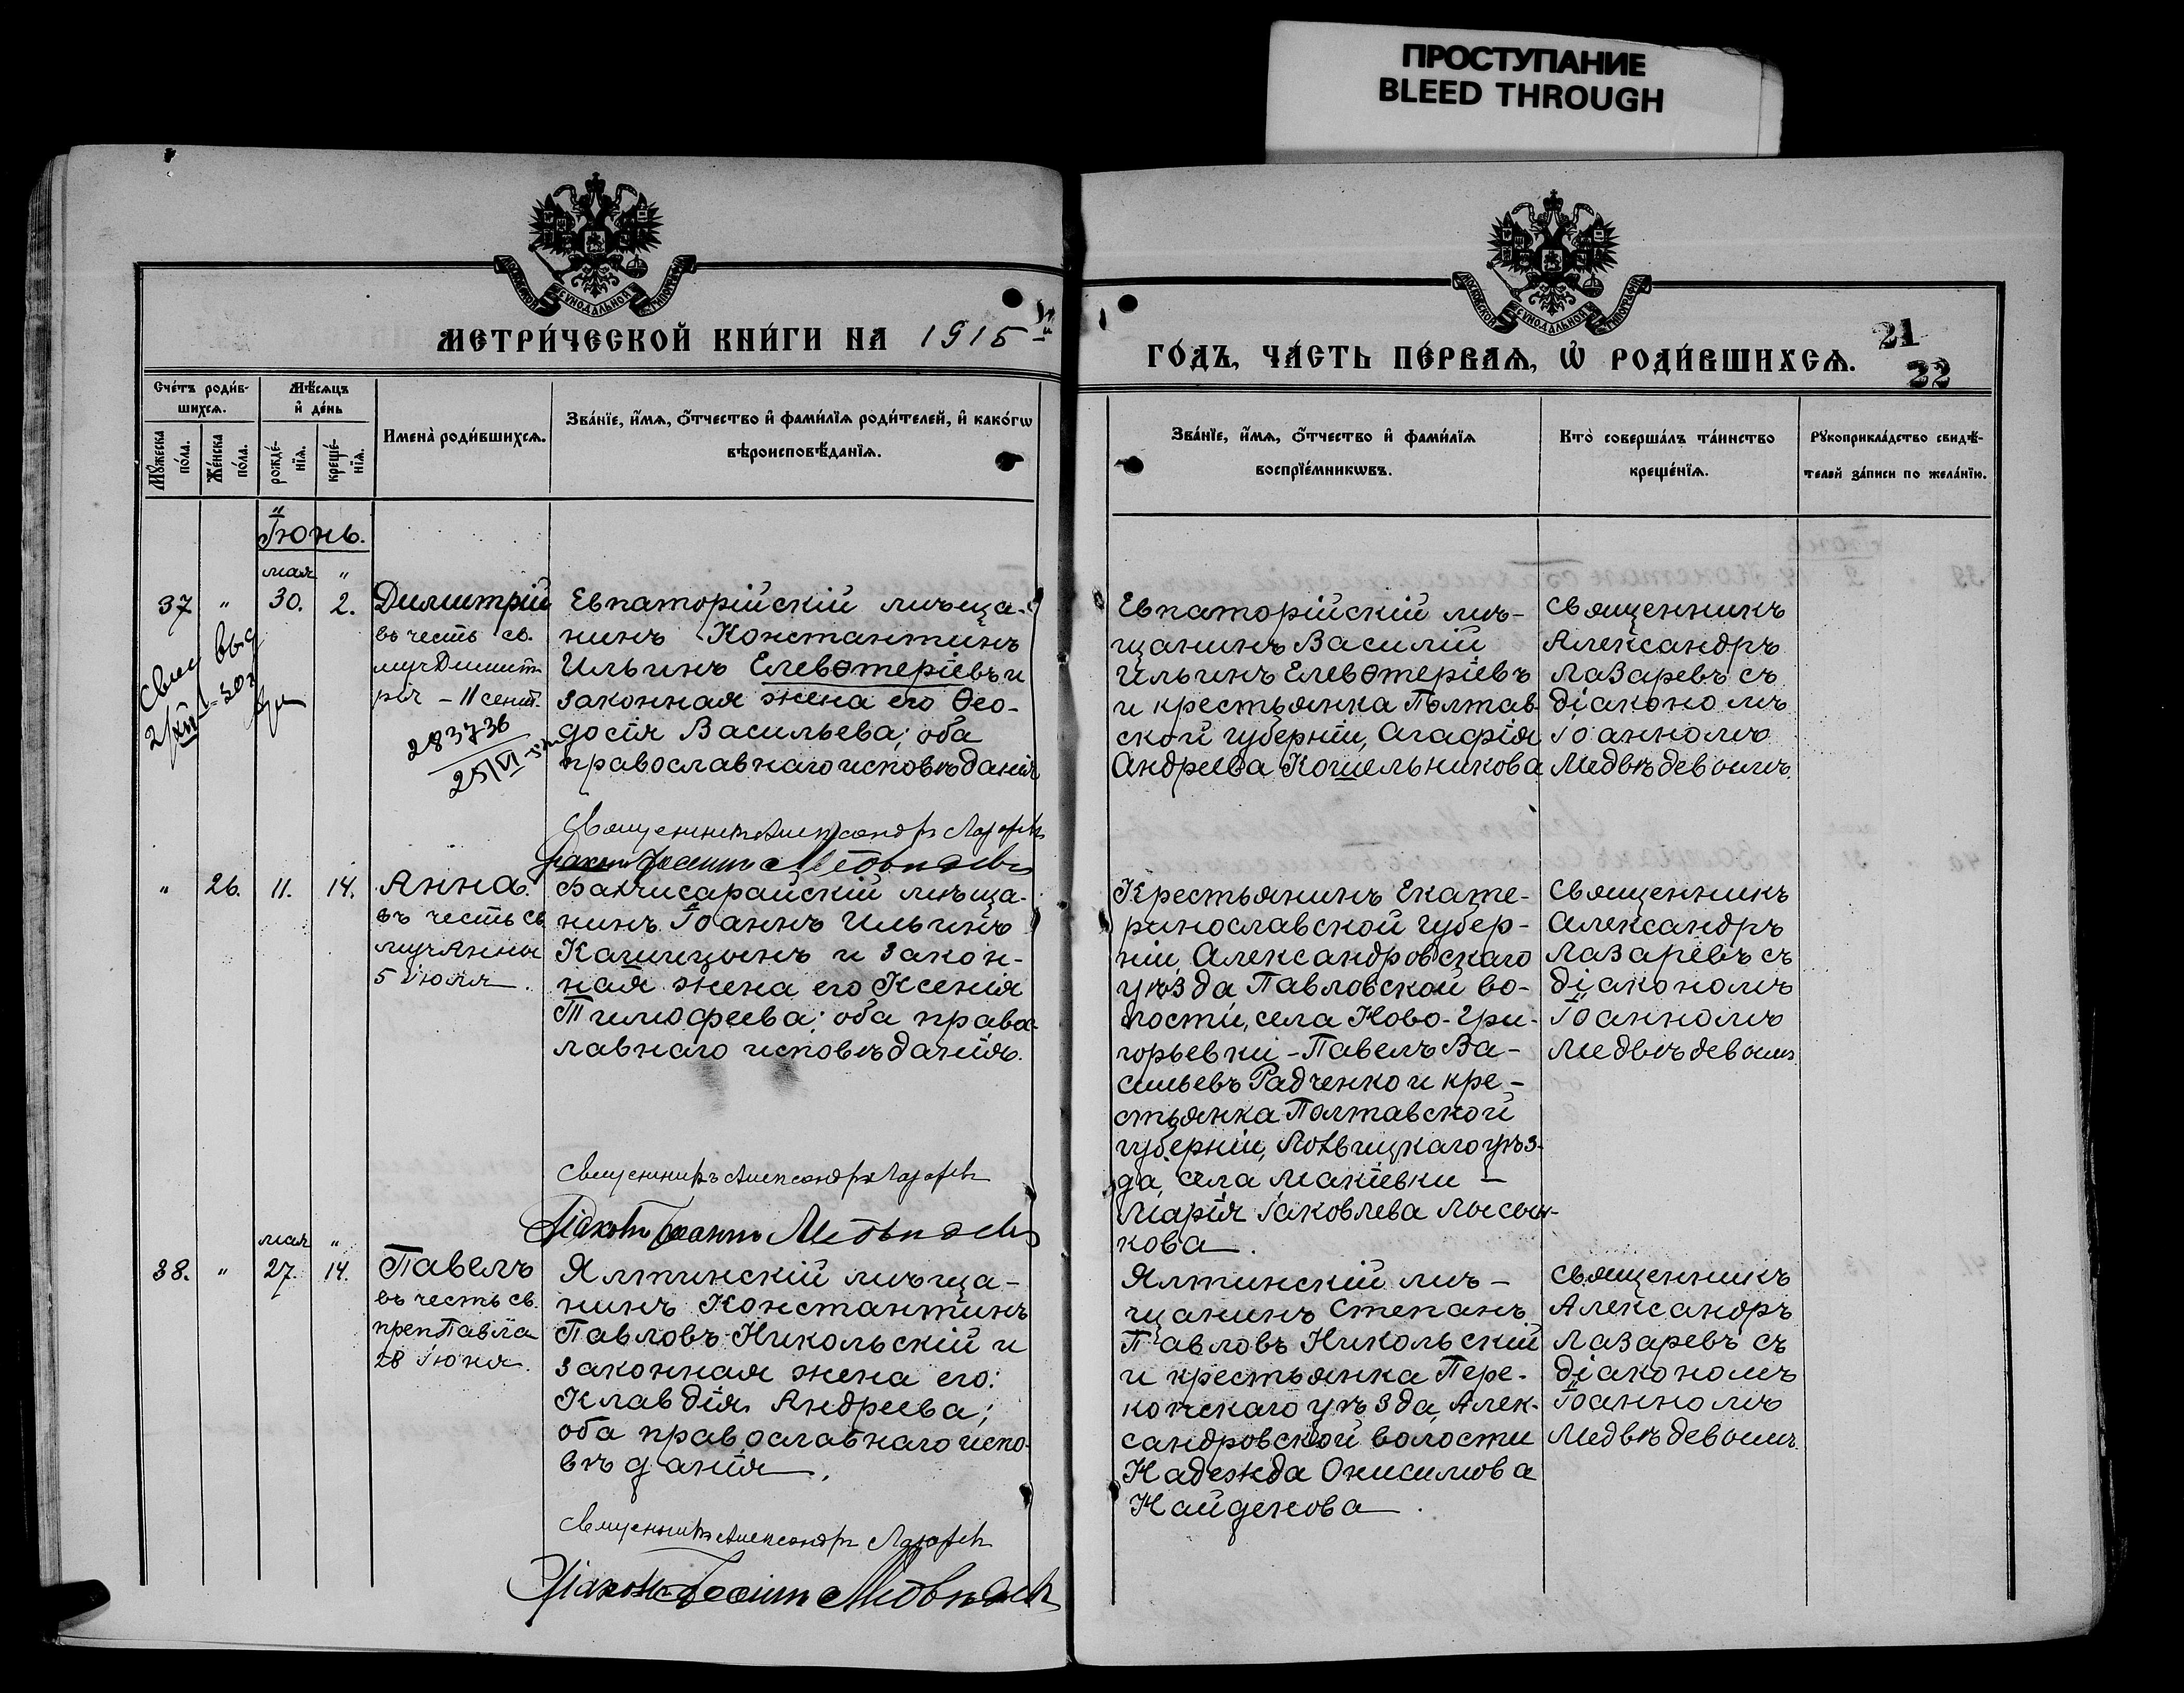 ПРОСТУПАНИЕ
BLEED THROUGH
МЕТРИ́ЧЕСКОЙ КНИ́ГИ НА 1915
ГО́ДЪ, ЧА́СТЬ ПЕ́РВАѦ, Ѡ҆ РОДИ́ВШИХСѦ.
21
22
Сче́тъ роди́в-
шихсѧ.
Мѣ́сѧцъ
и҆ де́нь
Мꙋ́жеска
по́ла.
Же́нска
по́ла.
рожде́-
нїѧ.
креще́-
нїѧ.
Имена̀ роди́вшихсѧ.
Зва́нїе, и҆́мѧ, ѻ҆́тчество и҆ фами́лїѧ роди́телей, и҆ како́гѡ
вѣроисповѣ́данїѧ.
Зва́нїе, и҆́мѧ, ѻ҆́тчество и҆ фами́лїѧ
воспрїе́мникѡвъ.
Кто̀ соверша́лъ та́инство
креще́нїѧ.
Рꙋкоприкла́дство свидѣ́-
телей за́писи по жела́нїю.
Іюнь.
мая "
37 " 30. 2.
Димитрій
въ честь св.
муч Димит-
рія - 11 сент.
283736
25/VI
Евпаторійскій мѣща-
нинъ Константинъ
Ильинъ Елевѳтеріевъ и
законная жена его Ѳео-
досія Васильева; оба
православнаго исповѣданія
Священникъ Александръ Лазаревъ
Діаконъ Іоаннъ Медвѣдевъ
Евпаторійскій мѣ-
щанинъ Василій
Ильинъ Елевѳтеріевъ
и крестьянка Полтав-
ской губерніи, Агафія
Андреева Кошельникова
Священникъ
Александръ
Лазаревъ съ
діакономъ
Іоанномъ
Медвѣдевымъ.
" 26. 11. 14.
Анна.
въ честь св
муч Анны
5 Іюля.
Бахчисарайскій мѣща-
нинъ Іоаннъ Ильинъ
Кашицынъ и закон-
ная жена его Ксенія
Тимофеева; оба правос-
лавнаго исповѣданія.
Священникъ Александръ Лазаревъ
Діаконъ Іоаннъ Медвѣдевъ
Крестьянинъ Екате-
ринославской губер-
ніи, Александровскаго
уѣзда, Павловской во-
лости, села Ново-Гри-
горьевки - Павелъ Ва-
сильевъ Радченко и кре-
стьянка Полтавской
губерніи, Лохвицкаго уѣз-
да, села Макіевки -
Марія Іаковлева
кова.
Священникъ
Александръ
Лазаревъ съ
діакономъ
Іоанномъ
Медвѣдевымъ
мая "
38. " 27. 14.
Павелъ
въ честь св.
преп Павла
28 Іюня.
Ялтинскій мѣща-
нинъ Константинъ
Павловъ Никольскій и
законная жена его:
Клавдія Андреева;
оба православнаго испо-
вѣданія.
Священникъ Александръ Лазаревъ
Діаконъ Іоаннъ Медвѣдевъ
Ялтинскій мѣ-
щанинъ Степанъ
Павловъ Никольскій
и крестьянка Пере-
копскаго уѣзда, Алек-
сандровской волости
Надежда Онисимова
Найденова.
Священникъ
Александръ
Лазаревъ съ
діакономъ
Іоанномъ
Медвѣдевымъ.